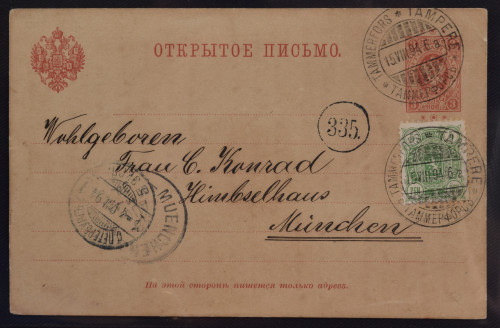 ОТКРЫТОЕ ПИСЬМО.
TAMMERFORS * TAMPERE
15.VIII.94.
TAMMERFORS
3 3
335.
Wohlgeboren
Frau C. Konrad
Himbselhaus
München
TAMMERFORS * TAMPERE
TAMMERFORS
MUENCHEN
На этой сторонѣ пишется только адресъ.